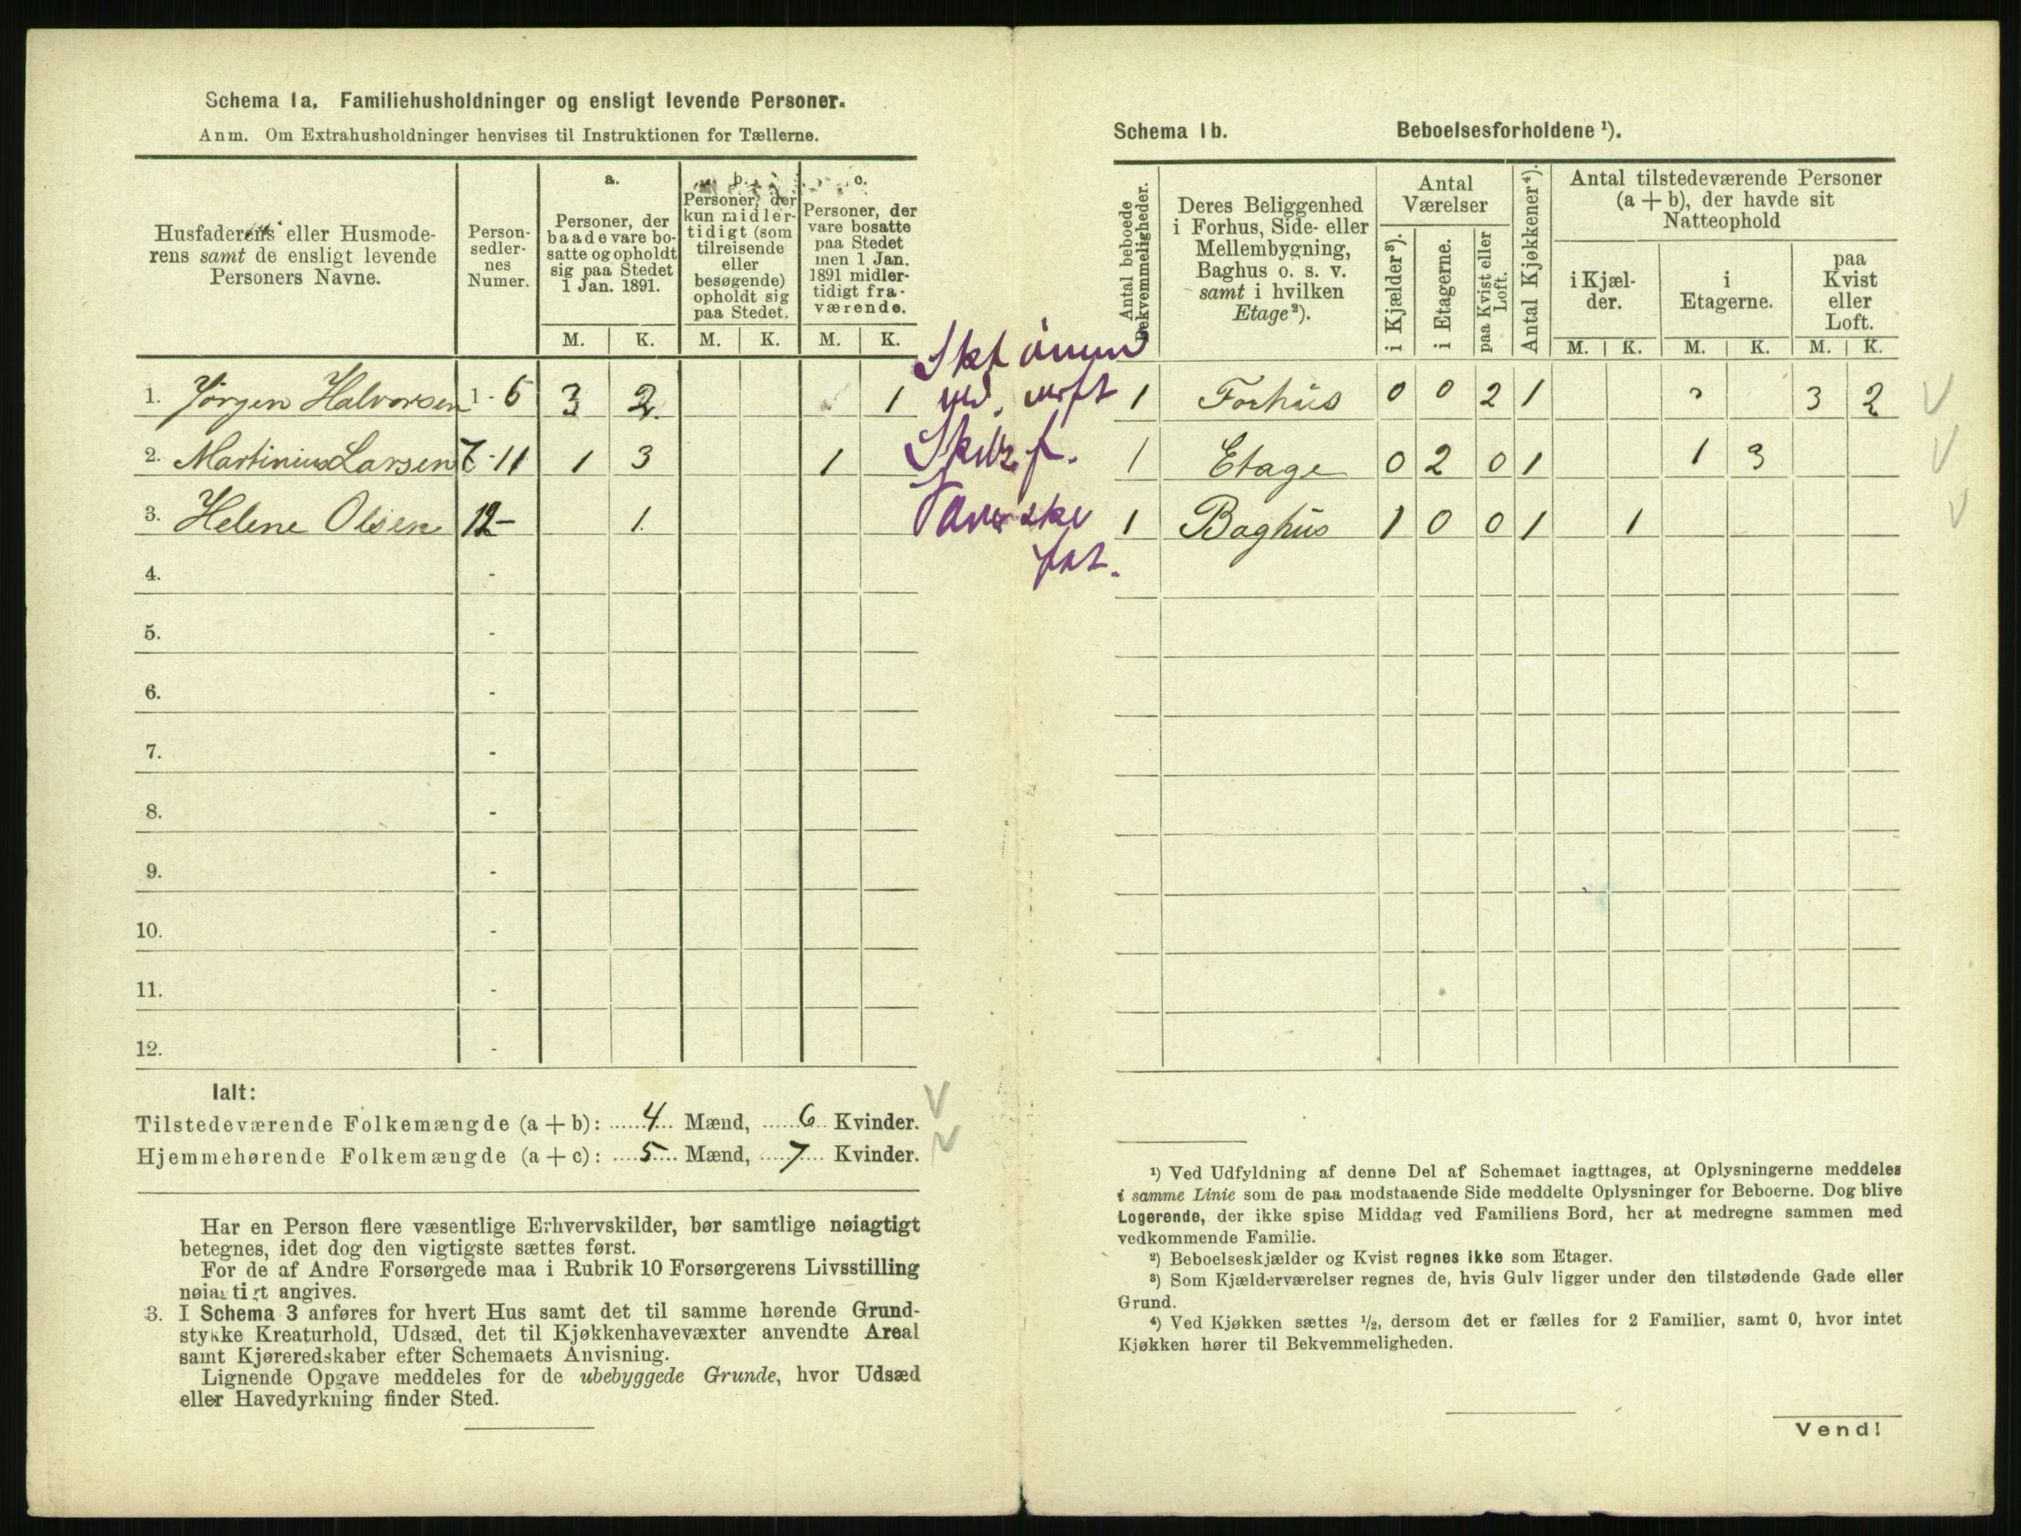 Schema 1a. Familiehusholdninger og ensligt levende Personer.
Anm. Om Extrahusholdninger henvises til Instruktionen for Tællerne.
Husfaderens eller Husmode-
rens samt de ensligt levende
Personers Navne.
Person-
sedler-
nes
Numer.
a.
Personer, der
baade vare bo-
satte og opholdt
sig paa Stedet
1 Jan. 1891.
b.
Personer, der
kun midler-
tidigt (som
tilreisende
eller
besøgende)
opholdt sig
paa Stedet.
c.
Personer, der
vare bosatte
paa Stedet
men 1 Jan.
1891 midler-
tidigt fra-
værende.
M. K. M. K. M. K.
1. Jörgen Halvorsen 1 - 6 3 2 1
2. Martinius Larsen 7 - 11 1 3 1
3. Helene Olsen 12 - 1
4. -
5. -
6. -
7. -
8. -
9. -
10. -
11. -
12. -
Ialt:
Tilstedeværende Folkemængde (a + b): 4 Mænd, 6 Kvinder.
Hjemmehørende Folkemængde (a + c): 5 Mænd, 7 Kvinder.
Har en Person flere væsentlige Erhvervskilder, bør samtlige nøiagtigt
betegnes, idet dog den vigtigste sættes først.
For de af Andre Forsørgede maa i Rubrik 10 Forsørgerens Livsstilling
nøiagtigt angives.
3. I Schema 3 anføres for hvert Hus samt det til samme hørende Grund-
stykke Kreaturhold, Udsæd, det til Kjøkkenhavevæxter anvendte Areal
samt Kjøreredskaber efter Schemaets Anvisning.
Lignende Opgave meddeles for de ubebyggede Grunde, hvor Udsæd
eller Havedyrkning finder Sted.
Schema 1b. Beboelsesforholdene ¹).
Antal beboede
Bekvemmeligheder.
Deres Beliggenhed
i Forhus, Side- eller
Mellembygning,
Baghus o. s. v.
samt i hvilken
Etage ²).
Antal
Værelser
i Kjælder ³).
i Etagerne.
paa Kvist eller
Loft.
Antal Kjøkkener ⁴).
Antal tilstedeværende Personer
(a + b), der havde sit
Natteophold
i Kjæl-
der.
i
Etagerne.
paa
Kvist
eller
Loft.
M. K. M. K. M. K.
1 Forhüs 0 0 2 1 3 2
1 Etage 0 2 0 1 1 3
1 Baghüs 1 0 0 1 1
¹) Ved Udfyldning af denne Del af Schemaet iagttages, at Oplysningerne meddeles
i samme Linie som de paa modstaaende Side meddelte Oplysninger for Beboerne. Dog blive
Logerende, der ikke spise Middag ved Familiens Bord, her at medregne sammen med
vedkommende Familie.
²) Beboelseskjælder og Kvist regnes ikke som Etager.
³) Som Kjælderværelser regnes de, hvis Gulv ligger under den tilstødende Gade eller
Grund.
⁴) Ved Kjøkken sættes ½, dersom det er fælles for 2 Familier, samt 0, hvor intet
Kjøkken hører til Bekvemmeligheden.
Vend!